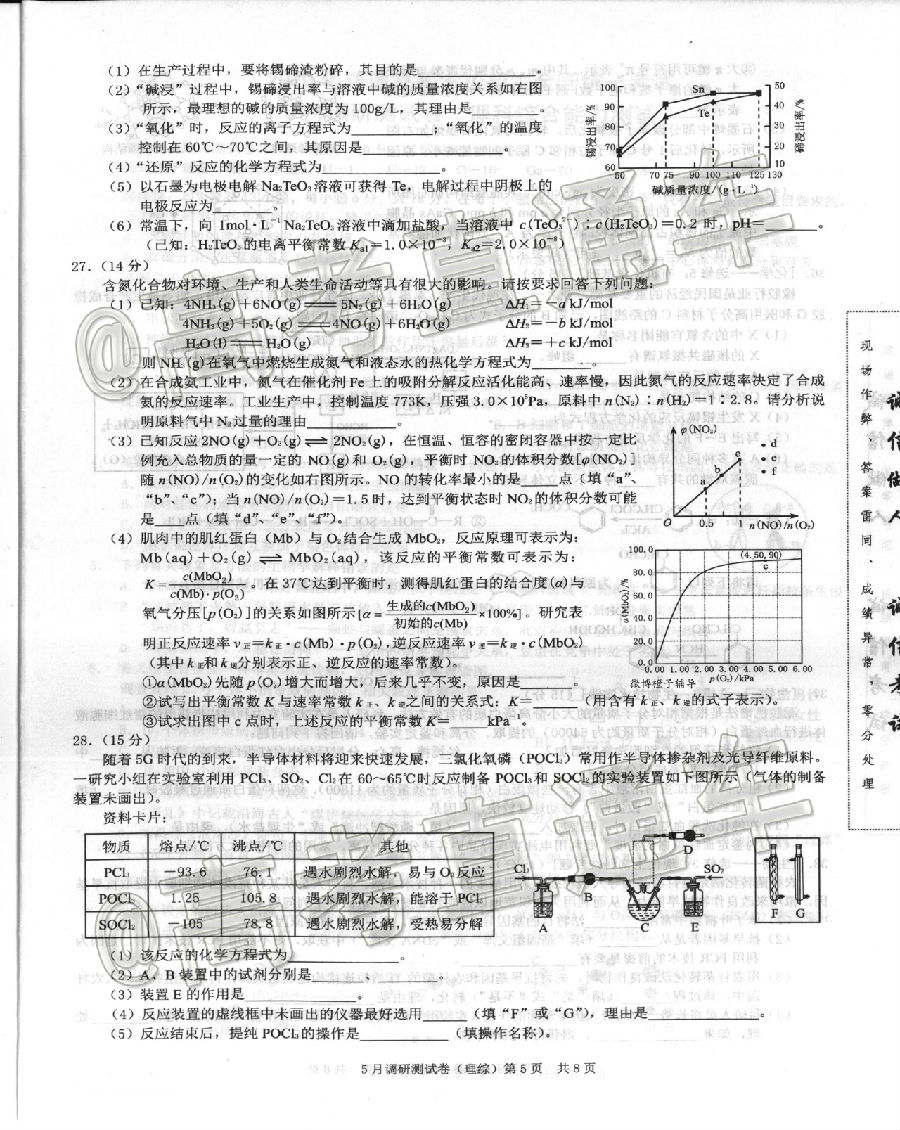 (1) 在生产过程中，要将锡碲渣粉碎，其目的是________。
(2)“碱浸”过程中，锡碲浸出率与溶液中碱的质量浓度关系如右图
所示，最理想的碱的质量浓度为100g/L，其理由是________。
(3)“氧化”时，反应的离子方程式为________，“氧化”的温度
控制在60℃~70℃之间，其原因是________。
(4)“还原”反应的化学方程式为________。
(5) 以石墨为电极电解Na₂TeO₃溶液可获得Te，电解过程中阴极上的
电极反应为________。
(6) 常温下，向1mol·L⁻¹Na₂TeO₃溶液中滴加盐酸，当溶液中c(TeO₃²⁻)∶c(H₂TeO₃)=0.2时，pH=________。
(已知：H₂TeO₃的电离平衡常数Kₐ₁=1.0×10⁻³，Kₐ₂=2.0×10⁻⁸)
锡浸出率/%
碲浸出率/%
100
90
80
70
60
50
40
30
20
10
Sn
Te
50 70 75 90 100 110 125 130
碱质量浓度/(g·L⁻¹)
27.(14分)
含氮化合物对环境、生产和人类生命活动等具有很大的影响。请按要求回答下列问题：
(1) 已知：4NH₃(g)+6NO(g)═5N₂(g)+6H₂O(g) ΔH₁=-a kJ/mol
4NH₃(g)+5O₂(g)═4NO(g)+6H₂O(g) ΔH₂=-b kJ/mol
H₂O(l)═H₂O(g) ΔH₃=+c kJ/mol
则NH₃(g)在氧气中燃烧生成氮气和液态水的热化学方程式为________。
(2) 在合成氨工业中，氮气在催化剂Fe上的吸附分解反应活化能高、速率慢，因此氮气的反应速率决定了合成
氨的反应速率。工业生产中，控制温度773K，压强3.0×10⁵Pa，原料中n(N₂)∶n(H₂)=1∶2.8。请分析说
明原料气中N₂过量的理由________。
(3) 已知反应2NO(g)+O₂(g)⇌2NO₂(g)，在恒温、恒容的密闭容器中按一定比
例充入总物质的量一定的NO(g)和O₂(g)，平衡时NO₂的体积分数[φ(NO₂)]
随n(NO)/n(O₂)的变化如右图所示。NO的转化率最小的是____点（填“a”、
“b”、“c”）；当n(NO)/n(O₂)=1.5时，达到平衡状态时NO₂的体积分数可能
是____点（填“d”、“e”、“f”）。
φ(NO₂)
a
b
c
d
e
f
0 0.5 1 n(NO)/n(O₂)
(4) 肌肉中的肌红蛋白（Mb）与O₂结合生成MbO₂，反应原理可表示为：
Mb(aq)+O₂(g)⇌MbO₂(aq)，该反应的平衡常数可表示为：
K=c(MbO₂)/(c(Mb)·p(O₂))。在37℃达到平衡时，测得肌红蛋白的结合度(α)与
氧气分压[p(O₂)]的关系如图所示[α=生成的c(MbO₂)/初始的c(Mb)×100%]。研究表
明正反应速率v正=k正·c(Mb)·p(O₂)，逆反应速率v逆=k逆·c(MbO₂)
（其中k正和k逆分别表示正、逆反应的速率常数）。
①α(MbO₂)先随p(O₂)增大而增大，后来几乎不变，原因是________。
②试写出平衡常数K与速率常数k正、k逆之间的关系式：K=________（用含有k正、k逆的式子表示）。
③试求出图中c点时，上述反应的平衡常数K=________kPa⁻¹。
α(MbO₂)/%
100.0
80.0
60.0
40.0
20.0
0.0
(4.50, 90)
c
0.00 1.00 2.00 3.00 4.00 5.00 6.00
p(O₂)/kPa
微博橙子辅导
28.(15分)
随着5G时代的到来，半导体材料将迎来快速发展，三氯化氧磷（POCl₃）常用作半导体掺杂剂及光导纤维原料。
一研究小组在实验室利用PCl₃、SO₂、Cl₂在60~65℃时反应制备POCl₃和SOCl₂的实验装置如下图所示（气体的制备
装置未画出）。
资料卡片：
物质 熔点/℃ 沸点/℃ 其他
PCl₃ -93.6 76.1 遇水剧烈水解，易与O₂反应
POCl₃ 1.25 105.8 遇水剧烈水解，能溶于PCl₃
SOCl₂ -105 78.8 遇水剧烈水解，受热易分解
Cl₂
SO₂
A
B
C
D
E
F G
(1) 该反应的化学方程式为________。
(2) A、B装置中的试剂分别是________、________。
(3) 装置E的作用是________。
(4) 反应装置的虚线框中未画出的仪器最好选用____（填“F”或“G”），理由是________。
(5) 反应结束后，提纯POCl₃的操作是________（填操作名称）。
5月调研测试卷（理综）第5页 共8页
现场作弊、答案雷同、成绩异常，零分处理
诚信做人
诚信考试
@高考直通车
@高考直通车